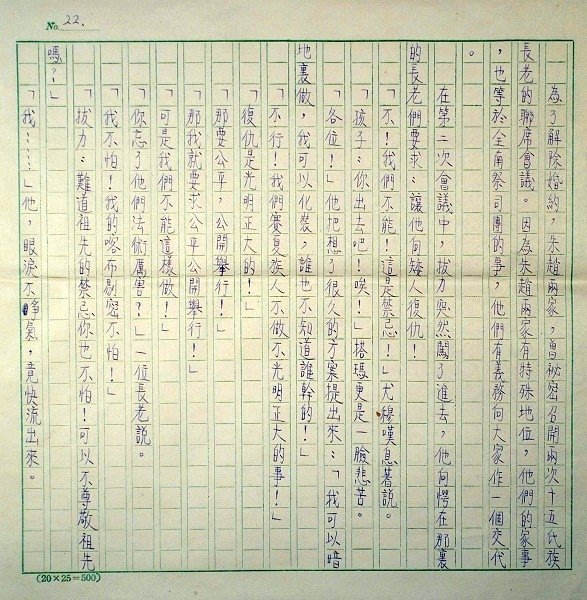 No. 22.
為了解除婚約，朱趙兩家，曾祕密召開兩次十五氏族
長老的聯席會議。因為朱趙兩家有特殊地位，他們的家事
，也等於全南祭司團的事，他們有義務向大家作一個交代
。
在第二次會議中，拔力突然闖了進去，他向愕在那裏
的長老們要求：讓他向矮人復仇！
「不！我們不能！這是禁忌！」尤穆嘆息著說。
「孩子：你出去吧！唉！」塔瑪更是一臉悲苦。
「各位！」他把想了很久的方案提出來：「我可以暗
地裏做，我可以化裝，誰也不知道誰幹的！」
「不行！我們賽夏族人不做不光明正大的事！」
「復仇是光明正大的！」
「那要公平，公開舉行！」
「那我就要求公平公開舉行！」
「可是我們不能這樣做！」
「你忘了他們法術厲害？」一位長老說。
「我不怕！我的喀布易密不怕！」
「拔力：難道祖先的禁忌你也不怕！可以不尊敬祖先
嗎？」
「我……」他，眼淚不爭氣，竟快流出來。
(20×25=500)